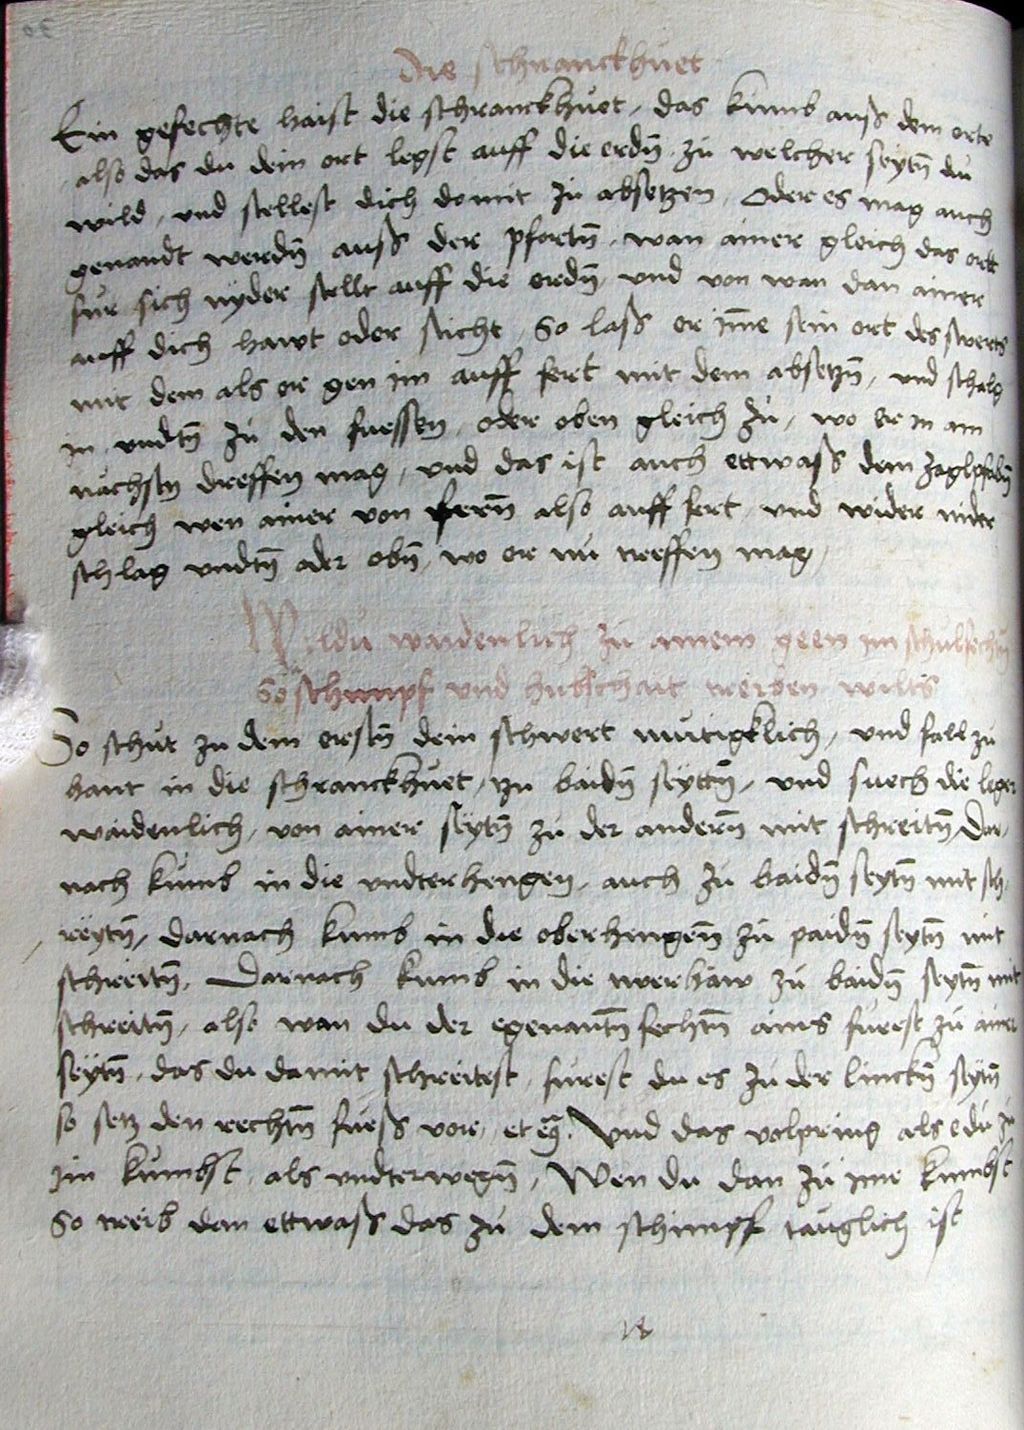 Die schranckhuet
Ein gefechte haist die schranckhuet, das kumb auß dem orte
also das du dein ort legst auff die erdn̄ zu welcher seytn̄ du
wild, und stellest dich domit zu absetzen, Oder es mag auch
genandt werdn̄ auß der pfortn̄, wan ainer gleich das ort
fur sich nyder stellt auff die erdn̄, und von wan dan ainer
auff dich hawt oder sticht, So lass er im̄e sein ort des swerts
mit dem als er gen im auff fert mit dem absetzn̄, und schalg
in undtn̄ zu den fuessen, oder oben gleich zu, wo er in am
nachstn dreffen mag, und das ist auch ettwaß dem
gleich wen ainer von fern̄ also auff fert, und wider nider
schlag undtn̄ oder obn̄, wo er nu treffen mag,
Wildu waidenlich zu ainem geen im schulfechtn̄
So schimpf und hubschait treiben wilts
So schut zu dem erstn̄ dein schwert mutigklich, und fall zu
hant in die schranckhuet, zu baidn̄ seyttn̄, und suech die leger
waidenlich, von ainer seytn̄ zu der andern̄ mit schreitn̄ Dar,
nach kumb in die undterhengen, auch zu baidn̄ seytn̄ mit sch,
reytn̄, darnach kumb in die oberhengen̄ zu paidn̄ seytn̄ mit
schreitn̄, Darnach kumb in die twerhaw zu baidn̄ seytn̄ mit
schreitn̄, also wan du der egenantn̄ fechtn̄ ains fuerest zu ainer
seytn̄, das du damit schreitest, furest du es zu der linckn̄ seytn̄
so setz den rechtn̄ fuess vore, et Und das volpring als e du zu
im kumbst, als undterwegn̄, Wen du dan zu ime kumbst
So treib dan ettwaß das zu dem schimpf tauglich ist